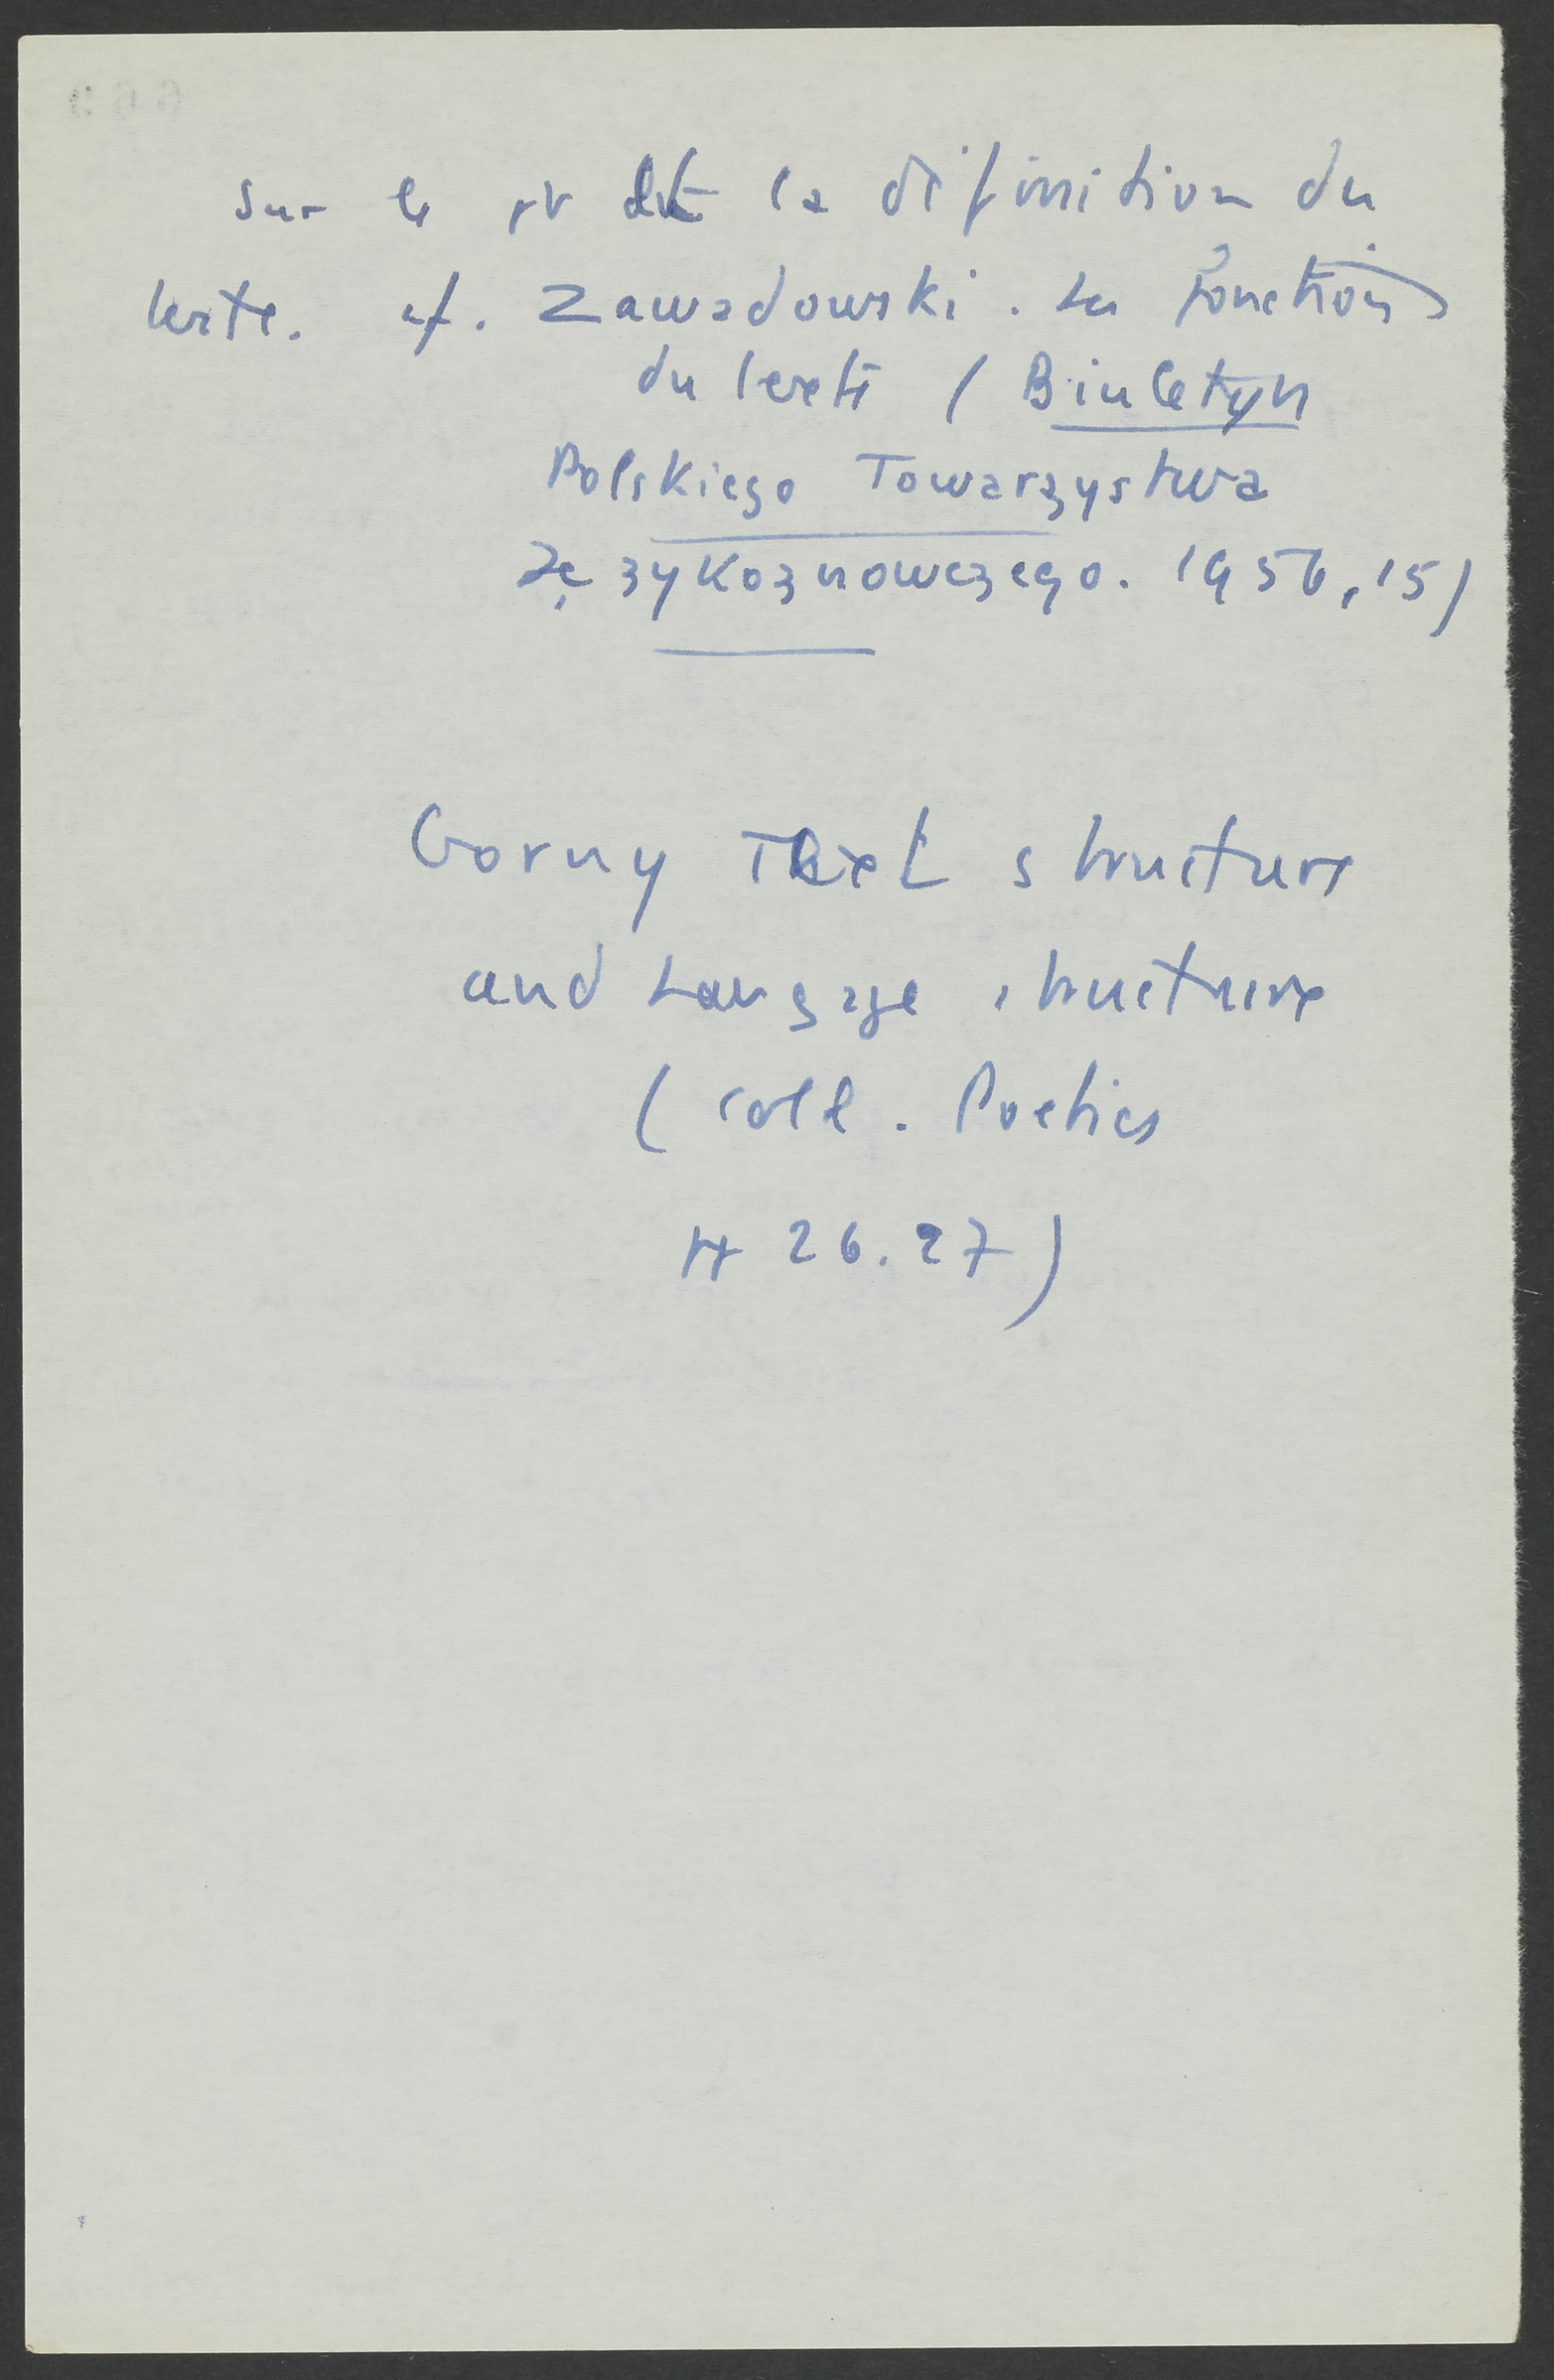 sur le pb de la définition du
texte. cf. Zawadowski. Les fonctions
du texte (Biuletyn
Polskiego Towarzystwa
Językoznowczego. 1956, 15)
Gorny Text structure
and Langage structure
(coll. Poetics
26.27)